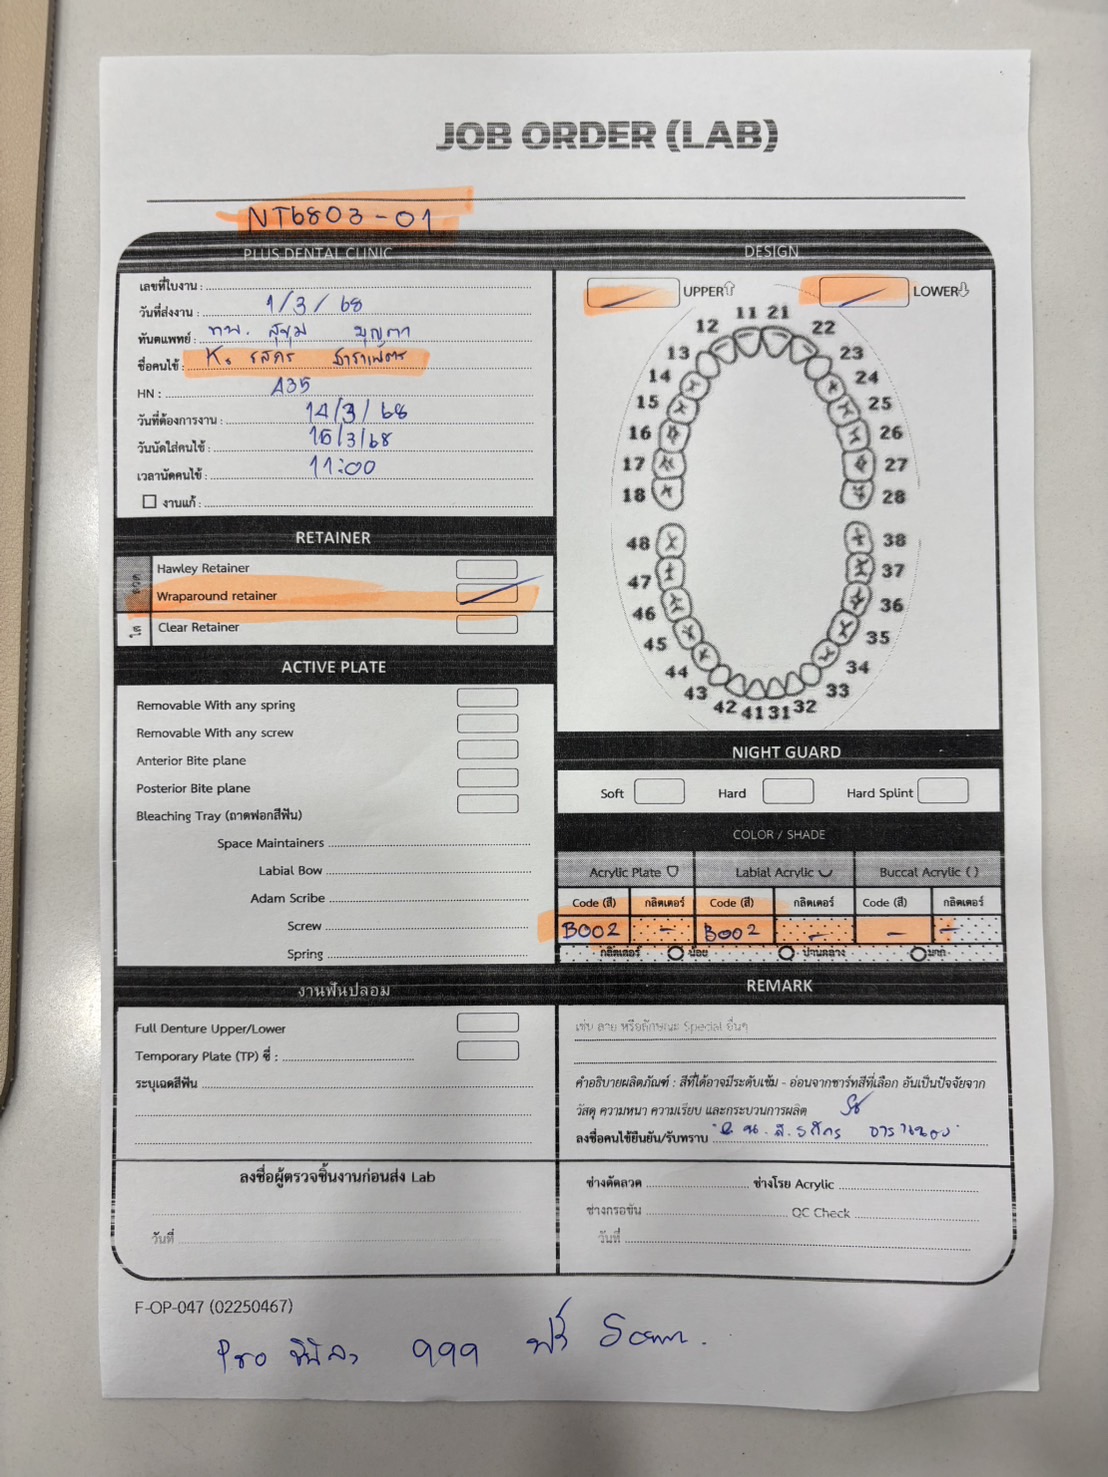 JOB ORDER (LAB)
NT6803-01
PLUS DENTAL CLINIC
เลขที่ใบงาน :
วันที่ส่งงาน : 1/3/68
ทันตแพทย์ : ทพ. สุขุม
ชื่อคนไข้ : K.
HN : A35
วันที่ต้องการงาน : 14/3/68
วันนัดใส่คนไข้ : 16/3/68
เวลานัดคนไข้ : 11:00
งานแก้ :
RETAINER
ลวด
Hawley Retainer
Wraparound retainer
ใส
Clear Retainer
ACTIVE PLATE
Removable With any spring
Removable With any screw
Anterior Bite plane
Posterior Bite plane
Bleaching Tray (ถาดฟอกสีฟัน)
Space Maintainers
Labial Bow
Adam Scribe
Screw
Spring
งานฟันปลอม
Full Denture Upper/Lower
Temporary Plate (TP) ซี่ :
ระบุเฉดสีฟัน
ลงชื่อผู้ตรวจชิ้นงานก่อนส่ง Lab
วันที่
DESIGN
UPPER LOWER
11 21
12 22
13 23
14 24
15 25
16 26
17 27
18 28
48 38
47 37
46 36
45 35
44 34
43 33
42 41 31 32
NIGHT GUARD
Soft Hard Hard Splint
COLOR / SHADE
Acrylic Plate Labial Acrylic Buccal Acrylic ( )
Code (สี) กลิตเตอร์ Code (สี) กลิตเตอร์ Code (สี) กลิตเตอร์
B002 - B002 - - -
กลิตเตอร์ น้อย ปานกลาง มาก
REMARK
เช่น ลาย หรือลักษณะ Special อื่นๆ
คำอธิบายผลิตภัณฑ์ : สีที่ได้อาจมีระดับเข้ม - อ่อนจากชาร์ทสีที่เลือก อันเป็นปัจจัยจาก
วัสดุ ความหนา ความเรียบ และกระบวนการผลิต
ลงชื่อคนไข้ยืนยัน/รับทราบ
ช่างดัดลวด ช่างโรย Acrylic
ช่างกรอขัน QC Check
วันที่
F-OP-047 (02250467)
999 ฟรี Scan.